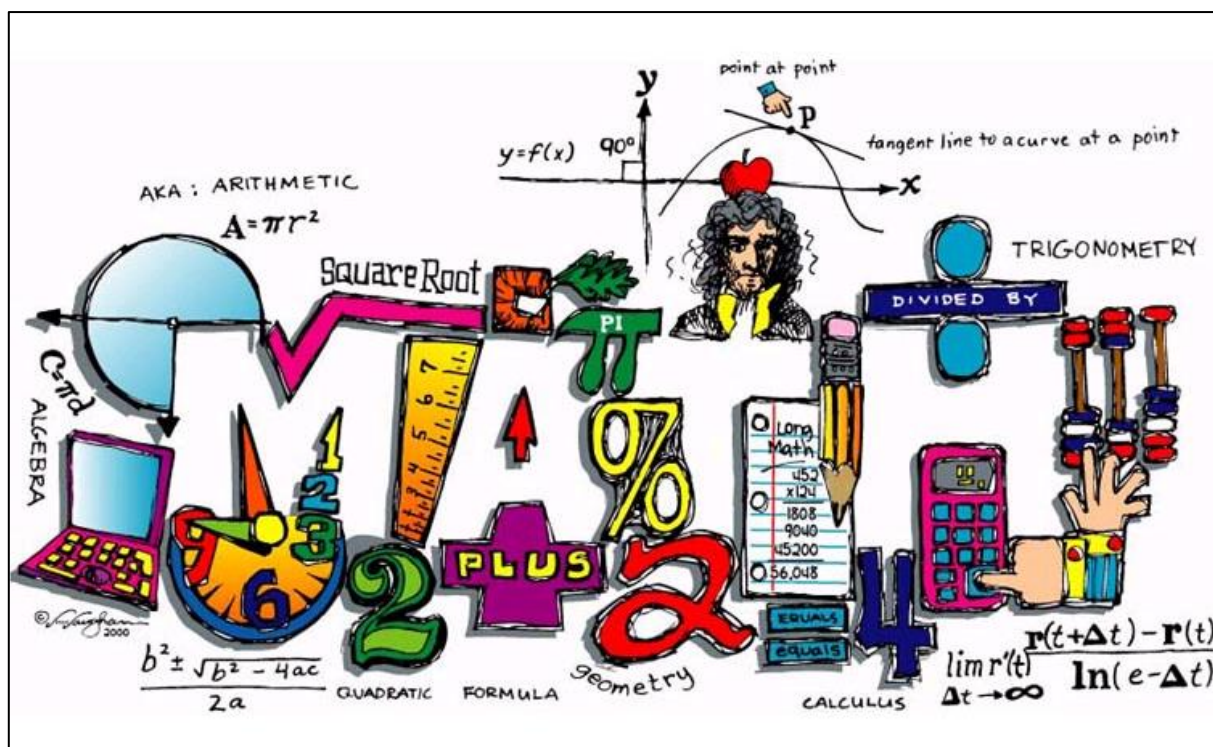 point at point
y
P
y=f(x)
90°
tangent line to a curve at a point
x
AKA: ARITHMETIC
A=πr²
SquareRoot
TRIGONOMETRY
DIVIDED BY
PI
C=πd
ALGEBRA
7
6
5
4
3
2
1
1
2
3
6
9
%
Long
Math
452
x124
1808
9040
45200
56,048
PLUS
2
2
EQUALS
equals
4
©
2000
b² ± √b² - 4ac
2a
QUADRATIC FORMULA
geometry
CALCULUS
lim r'(t)
Δt→∞
r(t+Δt) - r(t)
ln(e-Δt)